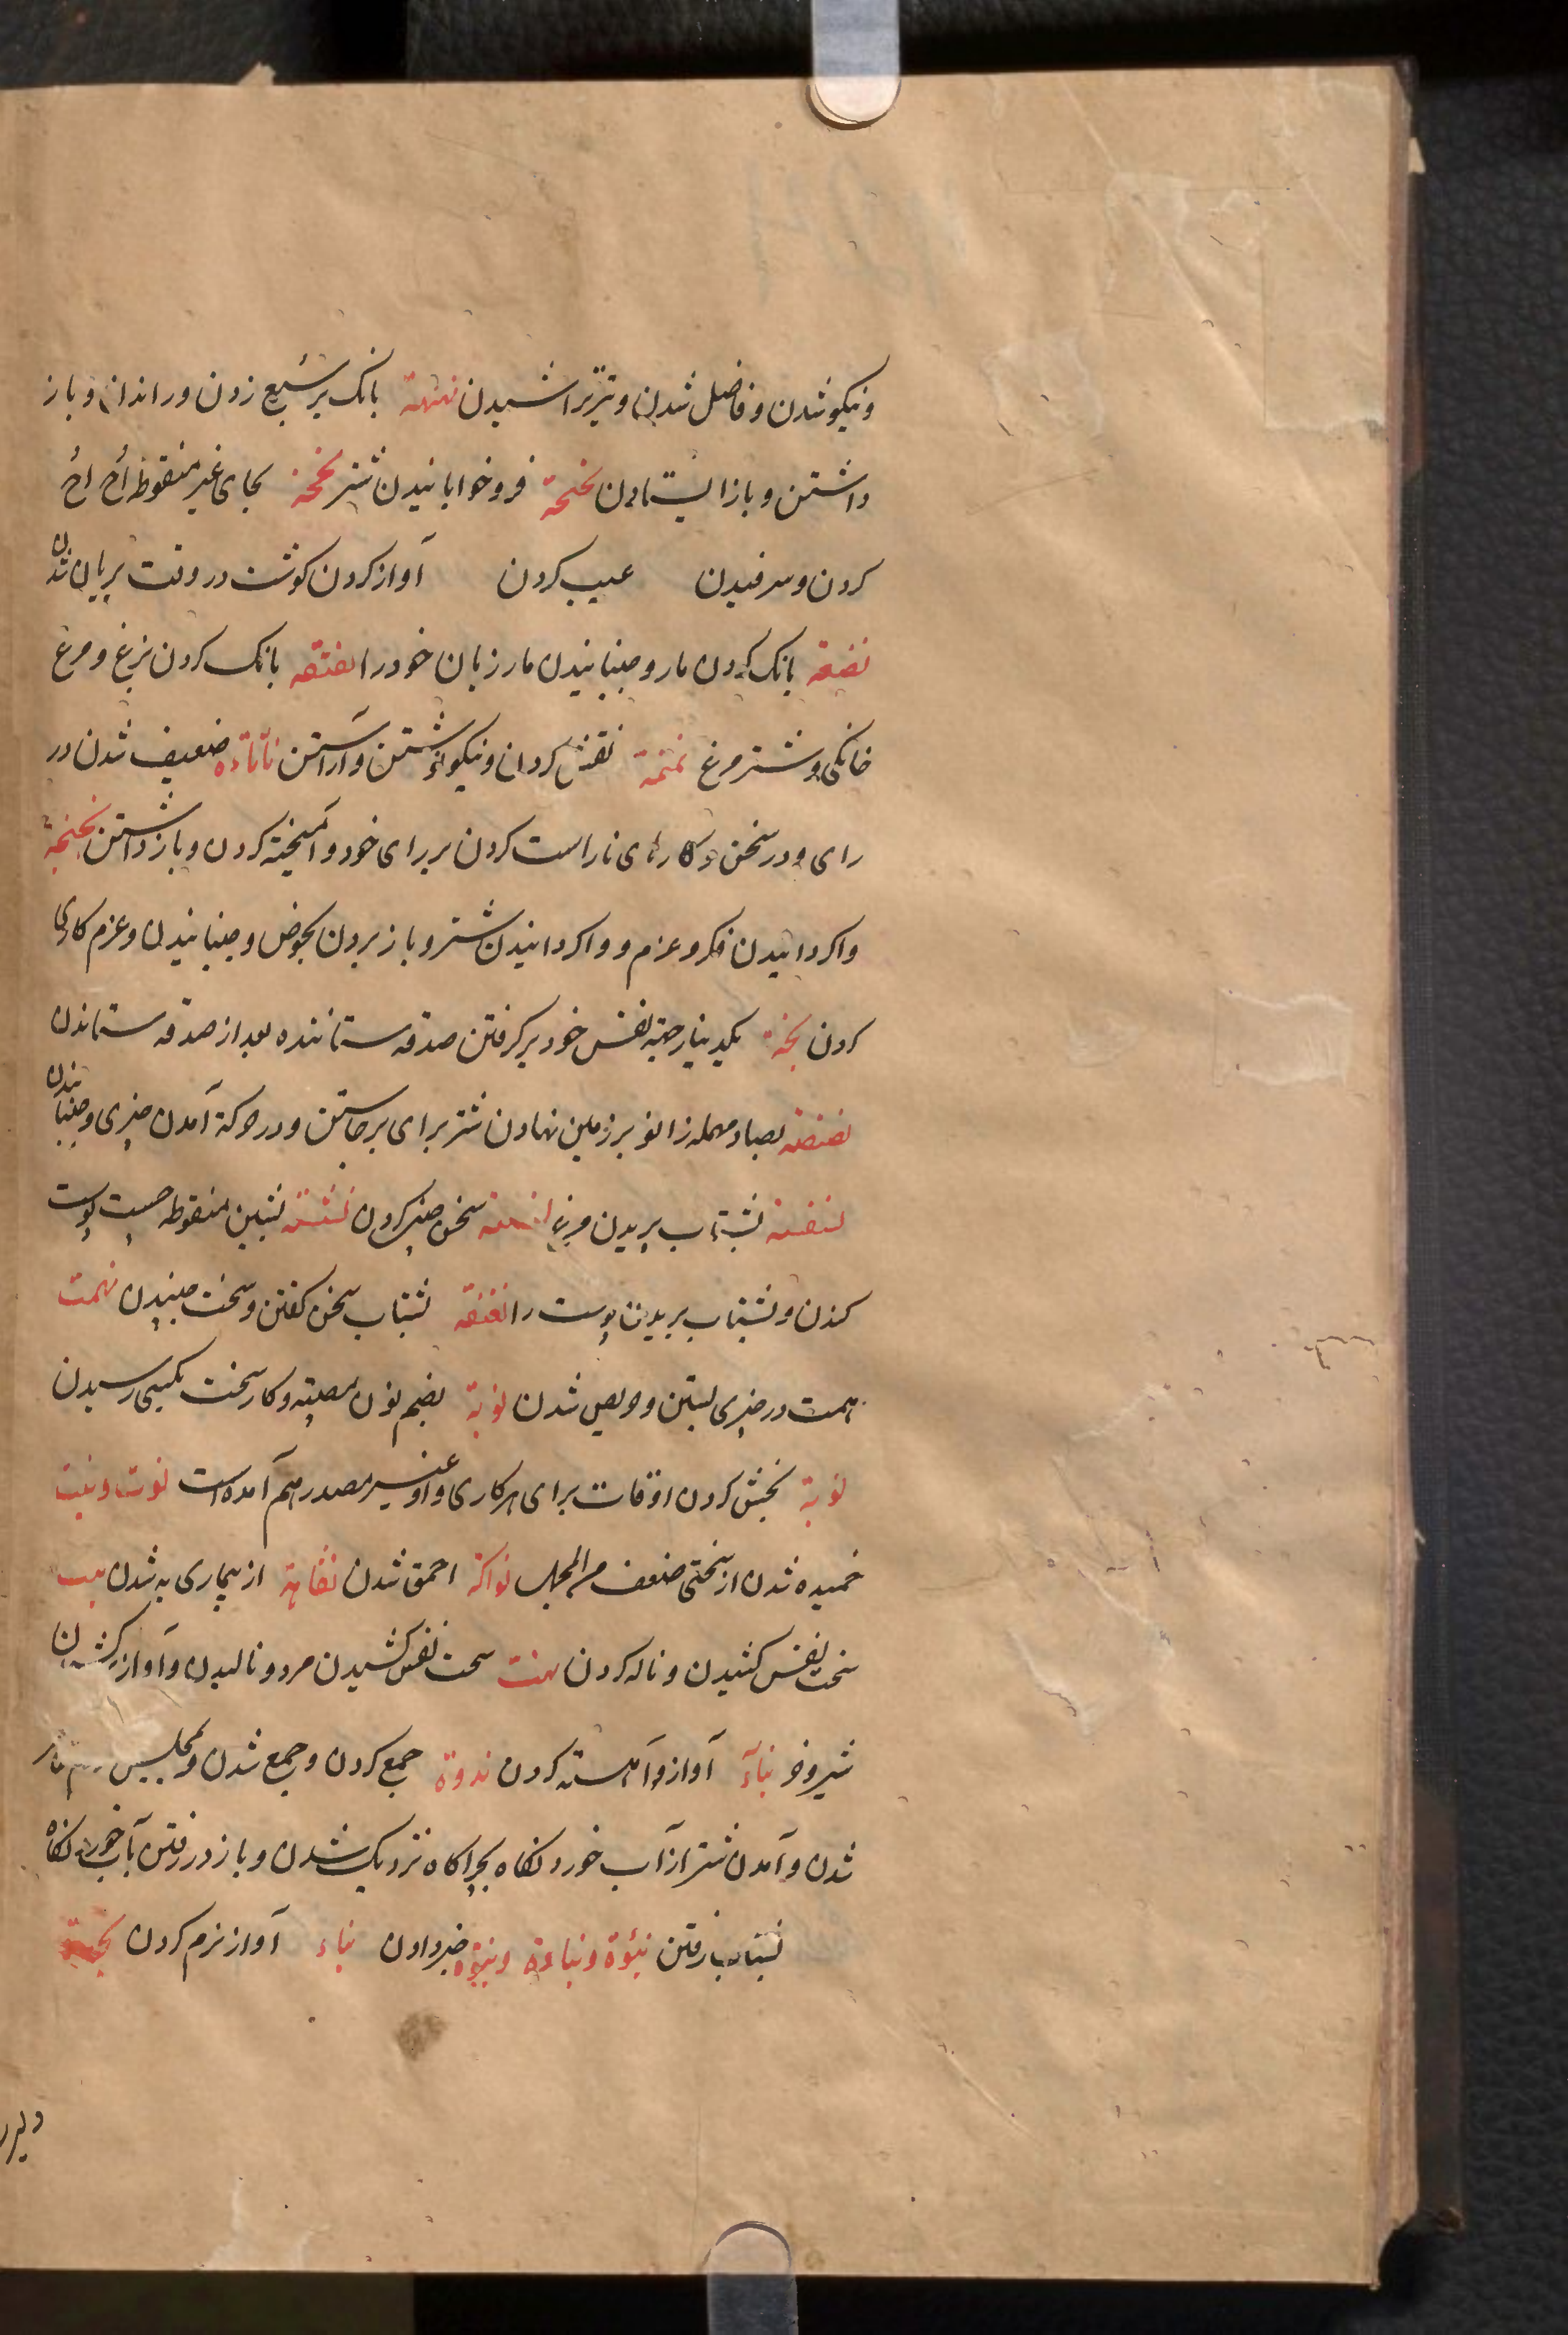 ونیکو شدن و فاضل شدن و تیز تراشیدن نهنهة بانک بر سبع زدن و راندان و باز
داشتن و باز ایستادن نخنخة فرو خوابانیدن شتر نحنحة بحای غیر منقوطه اُح اُح
کردن و سرفیدن عیب کردن آواز کردن کوشت در وقت بریان شدن
نضنضة بانک کردن مار و جنبانیدن مار زبان خود را نقنقه بانک کردن بزغ و مرغ
خانکی و شتر مرغ نمنمة نقش کردن و نیکو نوشتن و آراستن نأنأة ضعیف شدن در
رای و در سخن و کارهای ناراست کردن بر رای خود و آمیخته کردن و باز داشتن نجنجة
واکردانیدن فکر و عزم و واکردانیدن شتر و باز بردن بحوض و جنبانیدن و عزم کاری
کردن نخة یکدینار جهة نفس خود برکرفتن صدقه ستاننده بعد از صدقه ستاندن
نصنصة بصاد مهمله زانو بر زمین نهادن شتر برای برخاستن و در حرکة آمدن چیزی و جنبانیدن
بشتاب پریدن مرغ سخن چینی کردن نشنشة بشین منقوطه چست پوست
کندن و بشتاب بریدن پوست را نغنغة بشتاب سخن کفتن و سخت جنبیدن نهمت
همت در چیزی بستن و حریص شدن نوبة بضم نون مصیبة و کار سخت بکسی رسیدن
نوبة بخش کردن اوقات برای هر کاری و او غیر مصدر هم آمده است نوت و نیت
خمیده شدن از سختی ضعف من المجمل نواکة احمق شدن نقاهة از بیماری به شدن
سخت نفس کشیدن و ناله کردن نهت سخت نفس کشیدن مرد و نالیدن و آواز کشیدن
شیر و خر نبأة آواز آهسته کردن ندوة جمع کردن و جمع شدن و بمجلس
شدن و آمدن شتر از آب خورد نکاه بچراکاه نزدیک شدن و باز در رفتن آب خورد نکاه
بشتاب رفتن نبؤة و نباءة و نبوّة خبر دادن نباء آواز نرم کردن